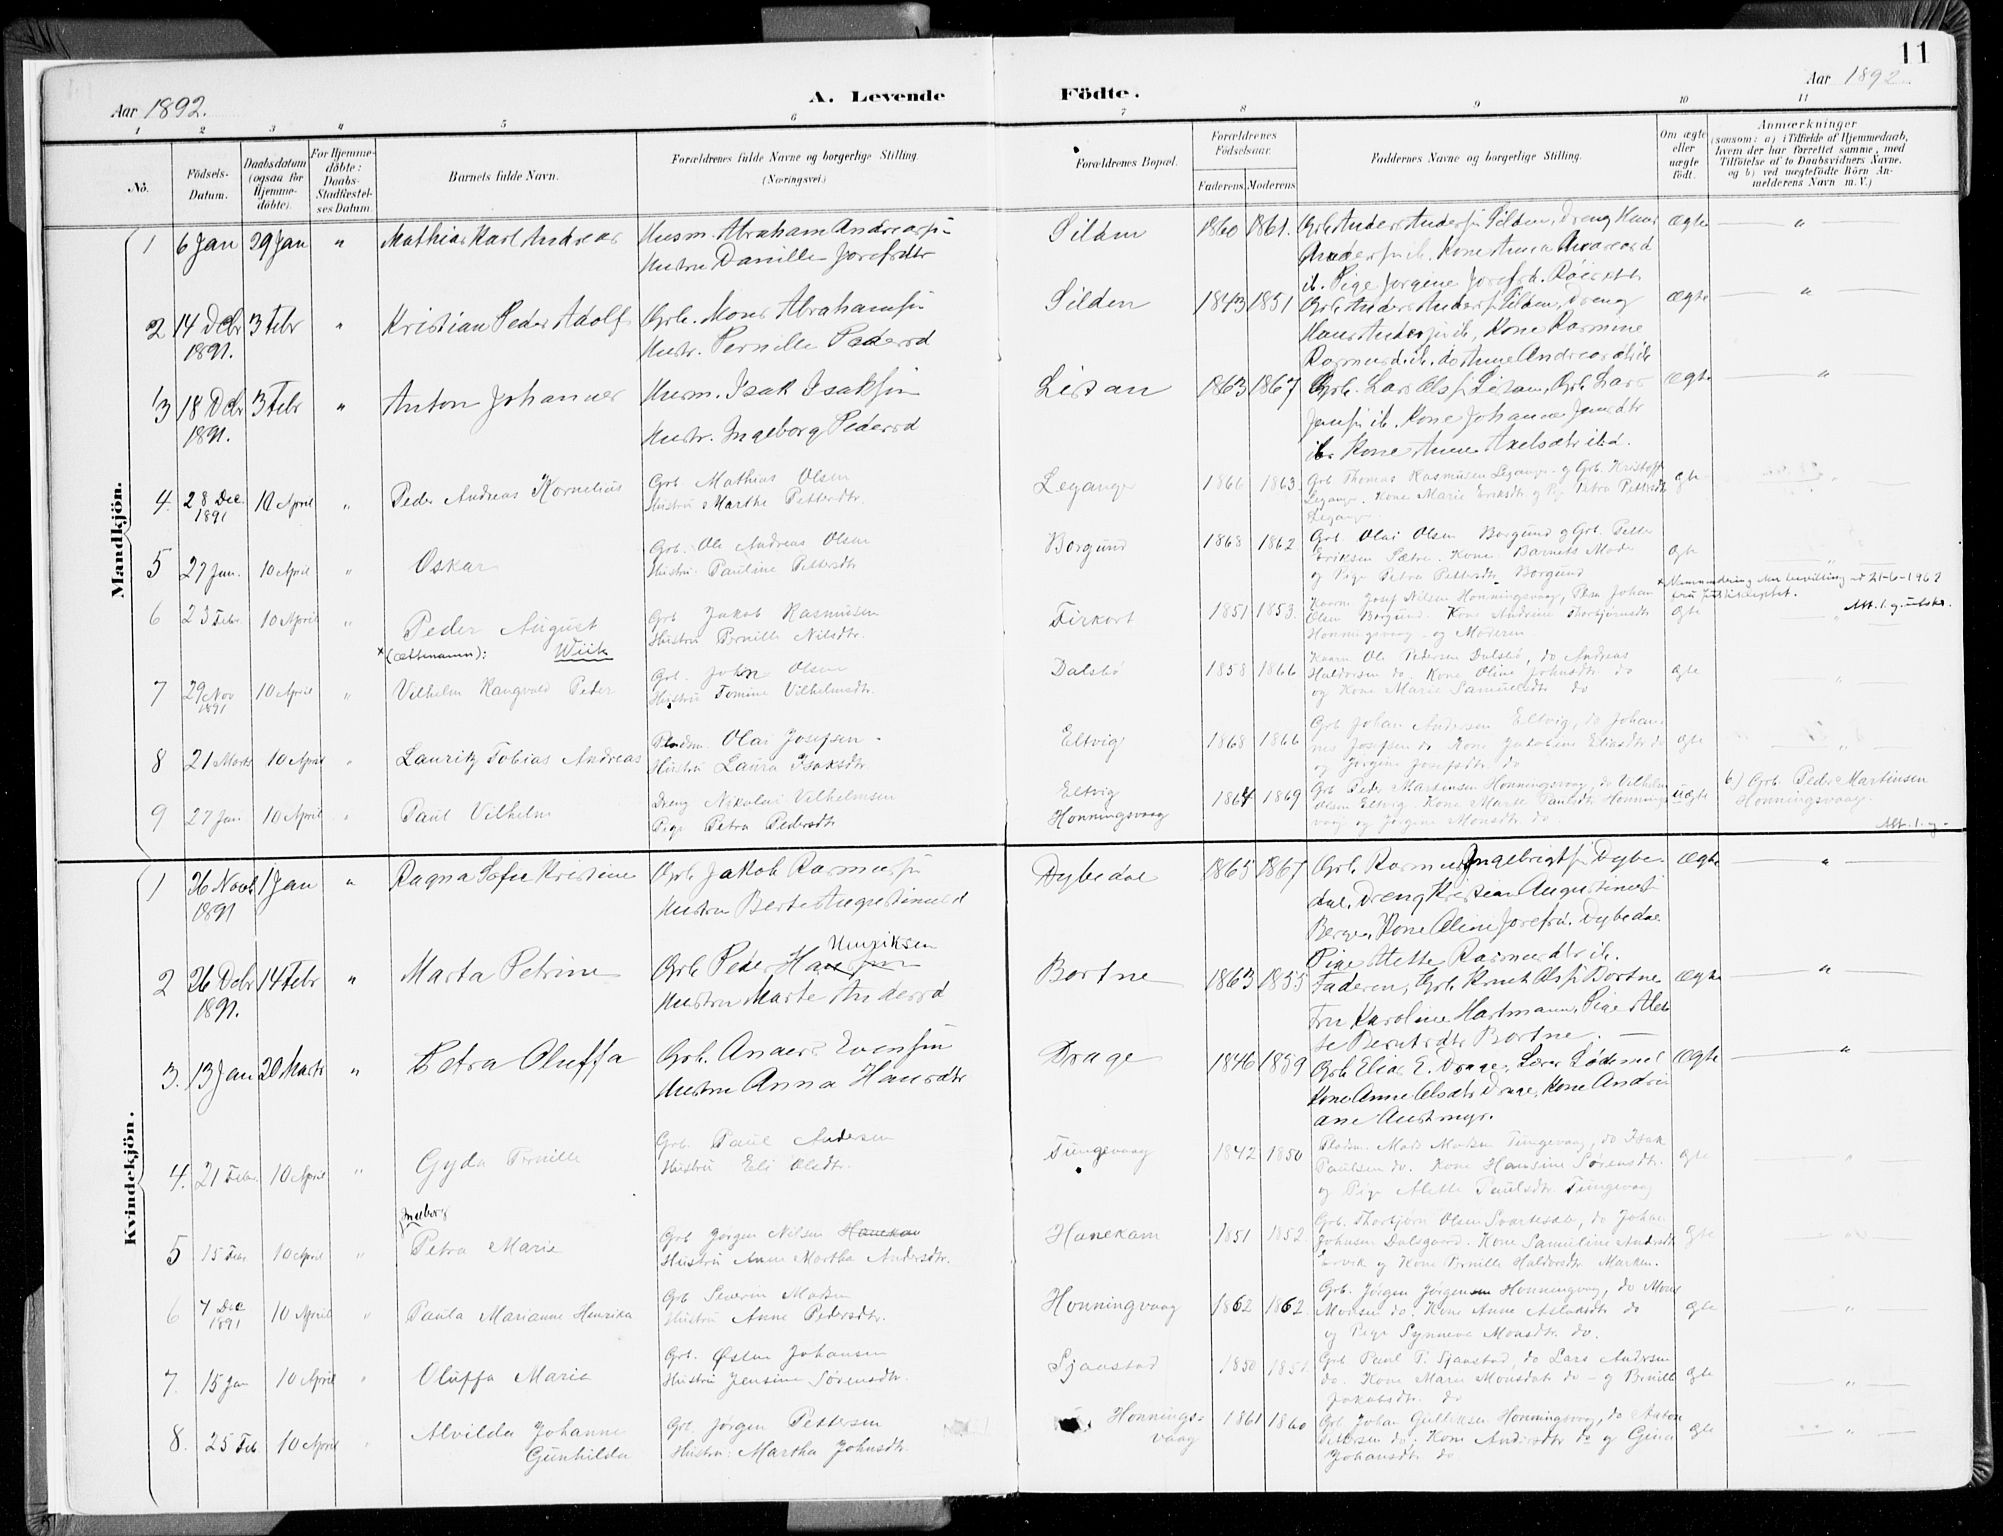 11
Aar 1892.
A. Levende Födte.
Aar 1892
1 2 3 4 5 6 7 8 9 10 11
No.
Födsels-Datum.
Daabsdatum (ogsaa for Hjemmedöbte).
For Hjemmedöbte: Daabs-Stadfæstelses Datum.
Barnets fulde Navn.
Forældrenes fulde Navne og borgerlige Stilling.
(Næringsvei.)
Forældrenes Bopæl.
Forældrenes Födselsaar.
Faderens Moderens
Faddernes Navne og borgerlige Stilling.
Om ægte eller uægte födt.
Anmærkninger
(saasom: a) i Tilfælde af Hjemmedaab, hvem der har forrettet samme, med Tilföielse af to Daabsvidners Navne, og b) ved uægtefödte Börn Anmelderens Navn m. V.)
Mandkjön.
1 6 Jan 29 Jan " Mathias Karl Andreas
Husm. Abraham Andreassn
Hustru Danille Josefsdtr
Silden 1860 1861.
Grb Anders Anderssn Silden, Dreng Hans
Anderssn ib. Kone Anna Abrahamsd
ib. Pige Jorgine Josefsd. Röisett
ægte "
2 14 Decbr 1891. 3 Febr " Kristian Peder Adolf
Grb. Mons Abrahamsn
Hustr. Pernille Pedersd
Silden 1843 1851
Grb Anders Anderssn Silden, Dreng
Hans Anderssn ib, Kone Rasmine
Rasmusd ib. do Anne Andreasdtr ib
ægte "
3 18 Decbr 1891. 3 Febr " Anton Johannes
Husm. Isak Isaksn
Hustr. Ingeborg Pedersd
Lesan 1863 1867
Grb. Lars Olssn Lesan, Grb. Lars
Janssn ib. Kone Johanne Jansdtr
ib. Kone Anne Axelsdtr ibd.
ægte "
4. 28 Dec. 1891 10 April " Peder Andreas Kornelius
Grb Mathias Olsen
Hustru Marthe Pettersdtr.
Leganger 1866 1863
Grb Thomas Rasmusen Leganger og Grb. Kristoff
Leganger. Kone Marie Eriksdtr. og Pige Petra Pettersdtr
Leganger
ægte "
5 27 Jan. 10 April " Oskar
Grb. Ole Andreas Olsen
Hustru Pauline Pettersdtr
Borgund 1868 1862
Grb. Olai Olsen Borgund og Grb. Petter
Eriksen Sætre. Kone Barnets Moder
og Pige Petra Pettersdtr Borgund
ægte "
6 23 Febr. 10 April " Peder August
x (ættenamn): Wiik
Grb Jakob Rasmusen
Hustru Pernille Nilsdtr.
Firkort 1851 1853.
Kaarm Josef Nilsen Honningsvaag, Plsm Johan
Olsen Borgund. Kone Andrine Thorbjørnsdtr
Honningsvaag og Moderen
ægte "
x Namnendring bevilling 21-6-1962
frå Justisdeptet.
Att. 1. g. utskr.
7 29 Nov 1891 10 April " Vilhelm Rangvald Peder
Grb. John Olsen
Hustru Tomine Vilhelmsdtr.
Dalsbø 1858 1866
Kaarm Ole Pedersen Dalsbø, do Andreas
Haldorsen do. Kone Oline Johnsdtr do
og Kone Marie Samuelsdtr do
ægte "
8 21 Marts 10 April " Lauritz Tobias Andreas
Pladsm. Olai Josefsen
Hustru Laura Isaksdtr
Eltvig 1868 1866
Grb Johan Andersen Eltvig, do Johan-
nes Josefsen do Kone Jakobine Eliasdtr do
og Jørgine Josefsdtr do
ægte "
9 27 Jan 10 April " Paul Vilhelm
Dreng Nikolai Vilhelmsen
Pige Petra Pedersdtr
Eltvig
Honningsvaag
1864 1869
Grb Peder Martinsen Honningsvaag, do Vilhelm
Olsen Eltvig. Kone Marte Paulsdtr Honnings-
vaag og Jørgine Monsdtr do.
uægte
b) Grb. Peder Martinsen
Honningsvaag.
Att. 1. g.
Kvindekjön.
1 26 Novb 1891 1 Jan " Ragna Sofie Kristine
Grb. Jakob Rasmussn
Hustru Berte Augustinusd
Dybedal 1865 1867
Grb. Rasmus Ingebrigtsn Dybe-
dal, Dreng Kristian Augustinussn
Berge, Kone Oline Josefsd. Dybedal
Pige Mette Rasmusdtr ib.
Ægte "
2 26 Decbr 1891. 14 Febr " Marta Petrine
Henriksen
Grb Peder Hanssen
Hustru Marte Andersd
Bortne 1863 1855
Faderen, Grb. Knut Olssn Bortne
Fru Karoline Hartmann, Pige Alet-
te Berntsdtr Bortne.
ægte "
3. 13 Jan 20 Marts " Petra Oluffa
Grb. Anders Evensen
Hustru Anna Hansdtr
Drage 1846 1859
Grb Elias E. Drage, Lærer Lødemel
Kone Anne Olsdtr Drage, Kone Andri-
ane Austmyr.
Ægte "
4. 21 Febr. 10 April " Gyda Pernille
Grb. Paul Andersen
Hustru Eli Olsdtr.
Tungevaag 1842 1850
Pladsm. Mads Madsen Tungevaag, do Isak
Paulsen do. Kone Hansine Sørensdtr.
og Pige Alette Paulsdtr. Tungevaag
ægte "
5 15 Febr 10 April " Ingeborg
Petra Marie
Grb Jørgen Nilsen Hanekam
Hustru Anne Martha Andersdtr.
Hanekam 1851 1852
Grb. Thorbjørn Olsen Svartesdal, do Johan
Johnsen Dalsgaard. Kone Samueline Andersdtr
Ervik og Kone Pernille Haldorsdtr Marken.
ægte "
6 7 Dec 1891 10 April " Paula Marianne Henrika
Grb Severin Madsen
Hustru Anne Pedersdtr.
Honningvaag 1862 1862.
Grb. Jørgen Jørgensen Honningvaag, do Mons
Monsen do. Kone Anne Aslaksdtr do
og Pige Synneve Monsdtr do.
ægte "
7. 15 Jan 10 April " Oluffa Marie
Grb. Østen Johansen
Hustru Jensine Sørensdtr.
Sjaastad 1850 1851
Grb Paul P. Sjaastad, do Lars Andersen
do. Kone Marie Monsdatr do og Pernille
Jakobsdtr. do
ægte "
8. 25 Feb 10 April " Alvilda Johanne
Gunhilda
Grb. Jørgen Pettersen
Hustru: Martha Johnsdtr.
Honnings-
vaag
1861 1860
Grb Johan Gulliksen Honningsvaag, do Anton
Pettersen do. Kone Andersdtr do og Gina
Johansdtr do
ægte "